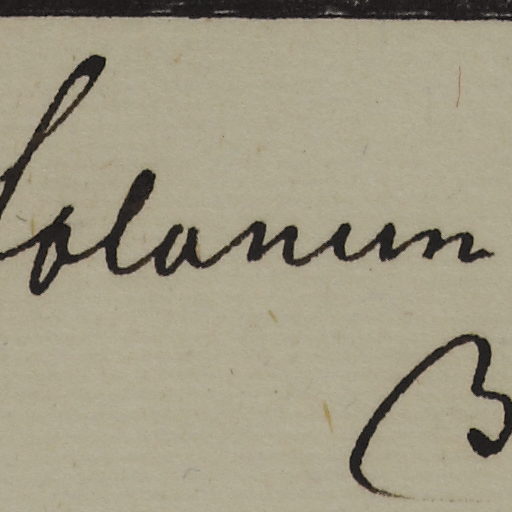 Solanum
B